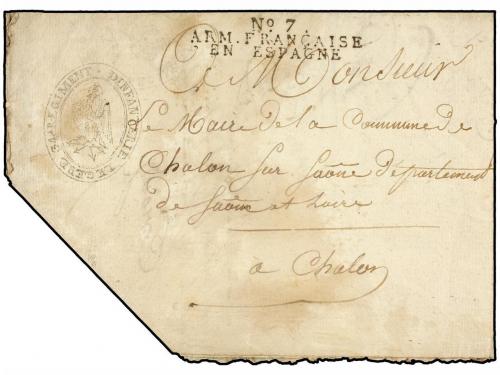 No 7
ARM. FRANÇAISE
EN ESPAGNE
A Monsieur
Le Maire de la Commune de
Chalon sur Saône département
de Saône et Loire
à Chalon
REGIMENT D'INFANTERIE LEGERE